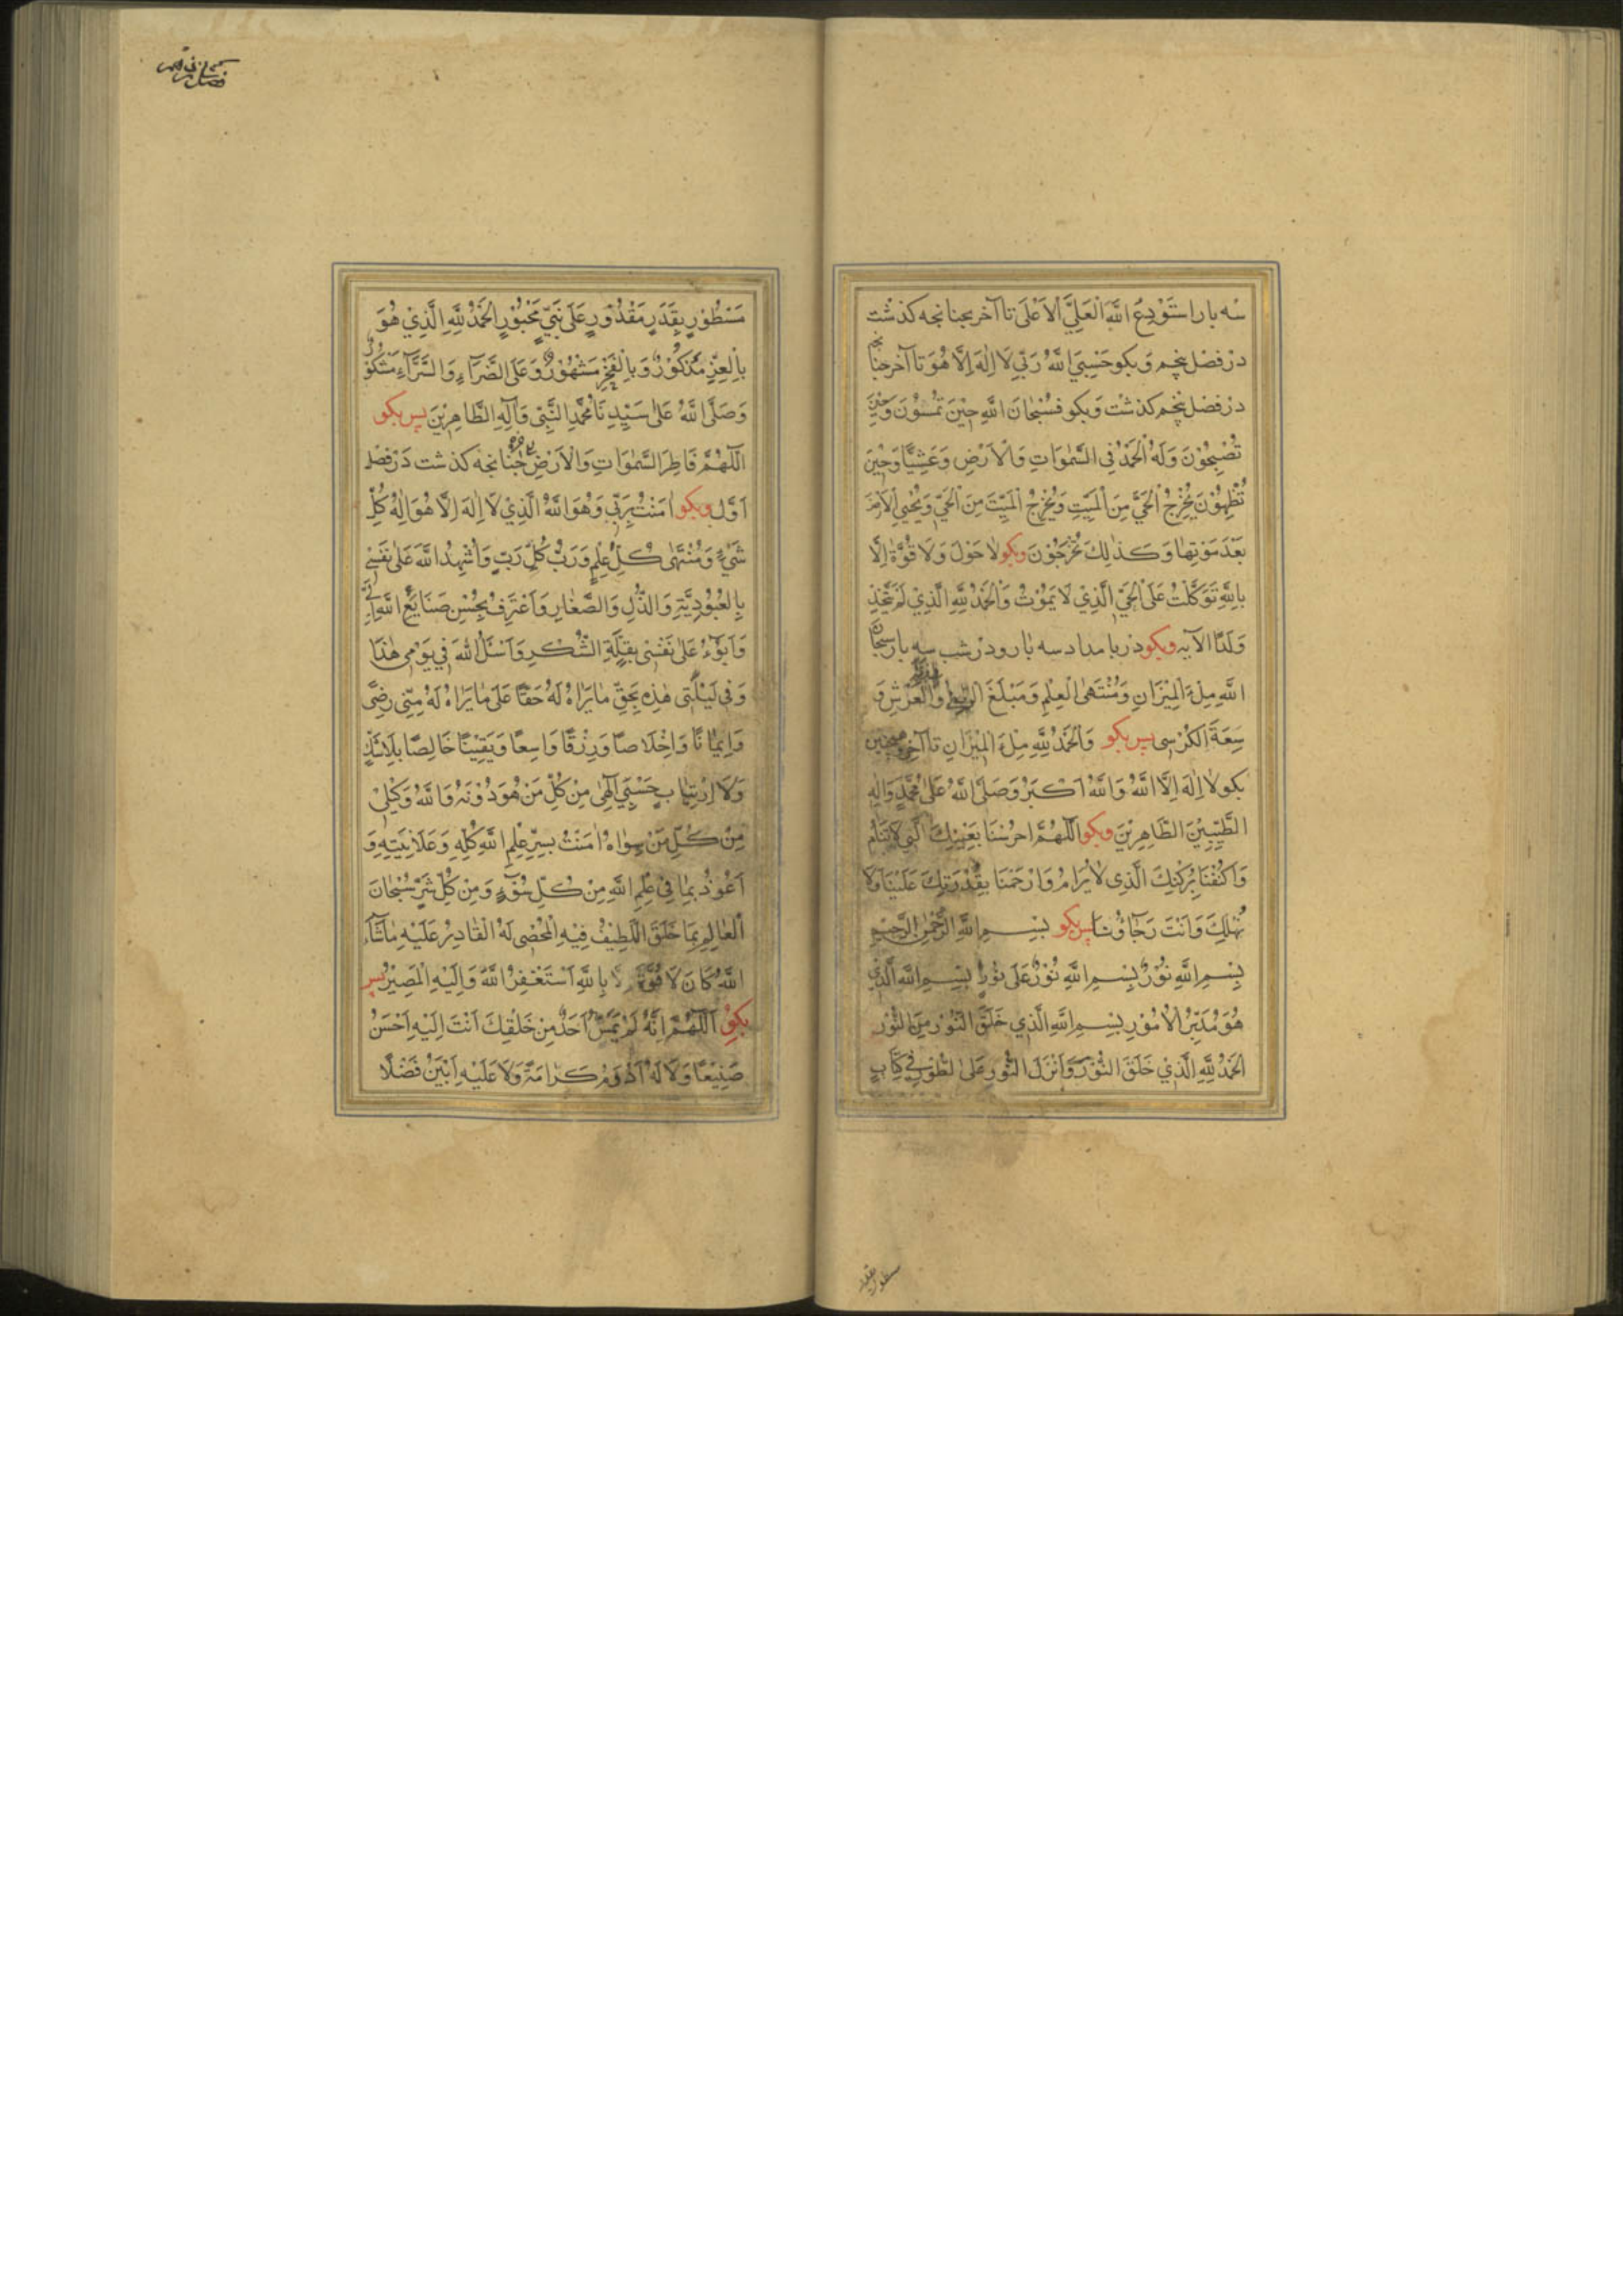 سه بار استَوْدِعُ اللهَ الْعَلِيَّ الْاَعْلىَ تا آخر چنانچه كذشت
در فصل پنجم وَ بكو حَسْبِيَ اللهُ رَبِّي لَا اِلٰهَ اِلَّا هُوَ تا آخر چنانچه
در فصل پنجم كذشت وَ بكو فَسُبْحَانَ اللهِ حِيْنَ تُمْسُوْنَ وَحِيْنَ
تُصْبِحُوْنَ وَلَهُ الْحَمْدُ فِي السَّمٰوَاتِ وَالْاَرْضِ وَعَشِيًّا وَحِيْنَ
تُظْهِرُوْنَ يُخْرِجُ الْحَيَّ مِنَ الْمَيِّتِ وَيُخْرِجُ الْمَيِّتَ مِنَ الْحَيِّ وَيُحْيِي الْاَرْضَ
بَعْدَ مَوْتِهَا وَكَذٰلِكَ تُخْرَجُوْنَ وبكو لَا حَوْلَ وَلَا قُوَّةَ اِلَّا
بِاللهِ تَوَكَّلْتُ عَلَى الْحَيِّ الَّذِيْ لَا يَمُوْتُ وَالْحَمْدُ لِلّٰهِ الَّذِيْ لَمْ يَتَّخِذْ
وَلَدًا الآيه وبكو در بامداد سه بار و در شب سه بار سبحان
اللهِ مِلْءَ الْمِيْزَانِ وَمُنْتَهَى الْعِلْمِ وَمَبْلَغَ وَالْعَرْشِ وَ
سِعَةَ الْكُرْسِي پس بكو وَالْحَمْدُ لِلّٰهِ مِلْءَ الْمِيْزَانِ تا آخر همچنين
بكو لَا اِلٰهَ اِلَّا اللهُ وَاللهُ اَكْبَرُ وَصَلَّى اللهُ عَلىٰ مُحَمَّدٍ وَاٰلِهِ
الطَّيِّبِيْنَ الطَّاهِرِيْنَ وبكو اَللّٰهُمَّ احْرُسْنَا بِعَيْنِكَ الَّتِي لَا تَنَامُ
وَاكْنُفْنَا بِرُكْنِكَ الَّذِي لَا يُرَامُ وَارْحَمْنَا بِقُدْرَتِكَ عَلَيْنَا وَلَا
نَهْلِكَ وَاَنْتَ رَجَاؤُنَا پس بكو بِسْمِ اللهِ الرَّحْمٰنِ الرَّحِيْمِ
بِسْمِ اللهِ نُوْرٌ بِسْمِ اللهِ نُوْرٌ عَلىٰ نُوْرٍ بِسْمِ اللهِ الَّذِيْ
هُوَ مُدَبِّرُ الْاُمُوْرِ بِسْمِ اللهِ الَّذِي خَلَقَ النُّوْرَ مِنَ النُّوْرِ
اَلْحَمْدُ لِلّٰهِ الَّذِيْ خَلَقَ النُّوْرَ وَاَنْزَلَ النُّوْرَ عَلَى الطُّوْرِ فِيْ كِتَابٍ
مسطور بقدر
مَسْطُوْرٍ بِقَدَرٍ مَقْدُوْرٍ عَلىٰ نَبِيٍّ مَحْبُوْرٍ اَلْحَمْدُ لِلّٰهِ الَّذِيْ هُوَ
بِالْعِزِّ مَذْكُوْرٌ وَبِالْفَخْرِ مَشْهُوْرٌ وَعَلَى الضَّرَّآءِ وَالسَّرَّآءِ مَشْكُوْرٌ
وَصَلَّى اللهُ عَلىٰ سَيِّدِنَا مُحَمَّدٍ النَّبِيِّ وَآلِهِ الطَّاهِرِيْنَ پس بكو
اَللّٰهُمَّ فَاطِرَ السَّمٰوَاتِ وَالْاَرْضِ چنانچه كذشت در فصل
اَوَّل وبكو اٰمَنْتُ بِرَبِّي وَهُوَ اللهُ الَّذِيْ لَا اِلٰهَ اِلَّا هُوَ اِلٰهُ كُلِّ
شَيْءٍ وَمُنْتَهٰى كُلِّ عِلْمٍ وَرَبُّ كُلِّ رَبٍّ وَاُشْهِدُ اللهَ عَلىٰ نَفْسِي
بِالْعُبُوْدِيَّةِ وَالذُّلِّ وَالصَّغَارِ وَاَعْتَرِفُ بِحُسْنِ صَنَايِعِ اللهِ اِلَيَّ
وَاَبُوْءُ عَلىٰ نَفْسِي بِقِلَّةِ الشُّكْرِ وَاَسْئَلُ اللهَ فِي يَوْمِي هٰذَا
وَفِي لَيْلَتِي هٰذِهِ بِحَقِّ مَا يَرَاهُ لَهُ حَقًّا عَلىٰ مَا يَرَاهُ لَهُ مِنِّي رِضًى
وَاِيْمَانًا وَاِخْلَاصًا وَرِزْقًا وَاسِعًا وَيَقِيْنًا خَالِصًا بِلَا شَكٍّ
وَلَا ارْتِيَابٍ حَسْبِي اِلٰهِي مِنْ كُلِّ مَنْ هُوَ دُوْنَهُ وَاللهُ وَكِيْلِي
مِنْ كُلِّ مَنْ سِوَاهُ اٰمَنْتُ بِسِرِّ عِلْمِ اللهِ كُلِّهِ وَعَلَانِيَتِهِ وَ
اَعُوْذُ بِمَا فِي عِلْمِ اللهِ مِنْ كُلِّ سُوْٓءٍ وَمِنْ كُلِّ شَرٍّ سُبْحَانَ
الْعَالِمِ بِمَا خَلَقَ اللَّطِيْفُ فِيْهِ الْمُحْصِي لَهُ الْقَادِرُ عَلَيْهِ مَا شَآءَ
اللهُ كَانَ لَا قُوَّةَ اِلَّا بِاللهِ اَسْتَغْفِرُ اللهَ وَاِلَيْهِ الْمَصِيْرُ پس
بكو اَللّٰهُمَّ اِنَّهُ لَمْ يُمْسِ اَحَدٌ مِنْ خَلْقِكَ اَنْتَ اِلَيْهِ اَحْسَنُ
صَنِيْعًا وَلَا لَهُ اَدْوَمُ كَرَامَةً وَلَا عَلَيْهِ اَبْيَنُ فَضْلًا